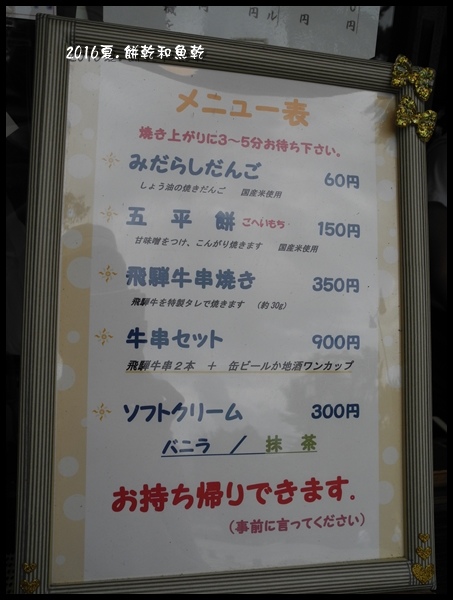 2016夏.餅乾和魚乾
メニュー表
焼き上がりに3～5分お待ち下さい。
みだらしだんご 60円
しょう油の焼きだんご 国産米使用
五平餅 ごへいもち 150円
甘味噌をつけ、こんがり焼きます 国産米使用
飛騨牛串焼き 350円
飛騨牛を特製タレで焼きます (約30g)
牛串セット 900円
飛騨牛串2本 + 缶ビールか地酒ワンカップ
ソフトクリーム 300円
バニラ / 抹茶
お持ち帰りできます.
(事前に言ってください)